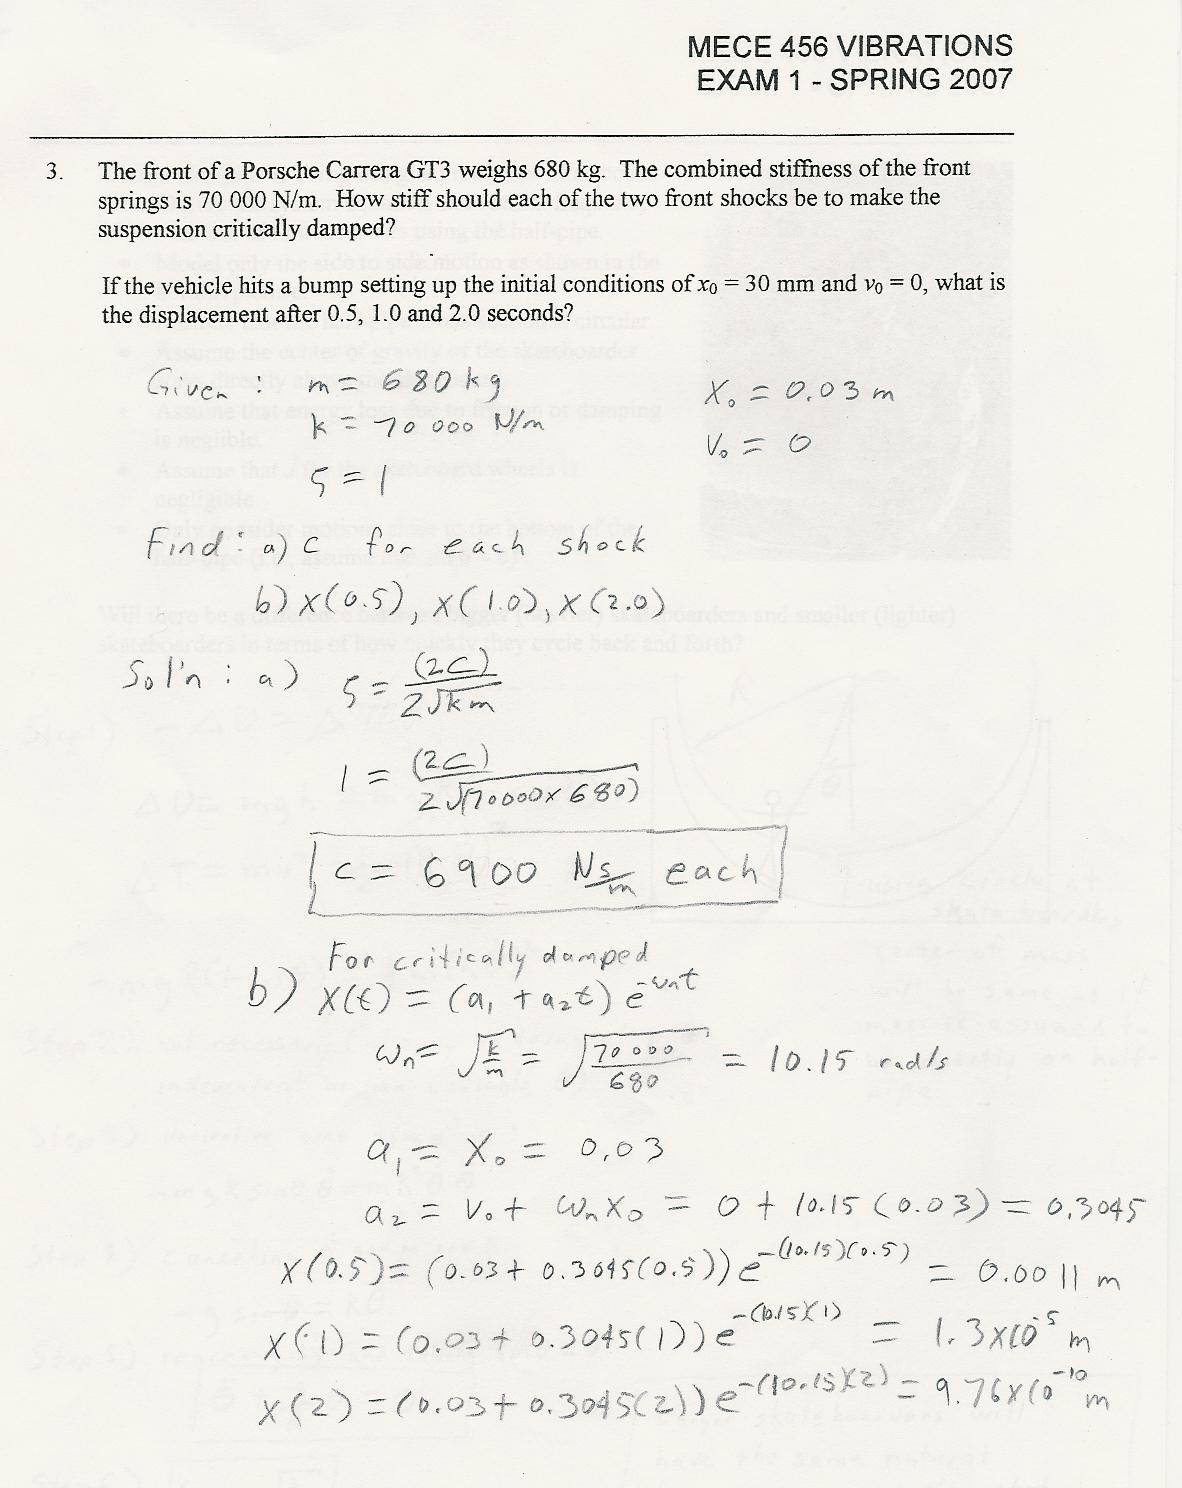 MECE 456 VIBRATIONS
EXAM 1 - SPRING 2007
3. The front of a Porsche Carrera GT3 weighs 680 kg. The combined stiffness of the front
springs is 70 000 N/m. How stiff should each of the two front shocks be to make the
suspension critically damped?
If the vehicle hits a bump setting up the initial conditions of x₀ = 30 mm and v₀ = 0, what is
the displacement after 0.5, 1.0 and 2.0 seconds?
Given : m = 680 kg
X₀ = 0.03 m
k = 70 000 N/m
V₀ = 0
ζ = 1
Find : a) c for each shock
b) x(0.5), x(1.0), x(2.0)
Sol'n : a) ζ = (2c) / 2√km
1 = (2c) / 2√(70000 x 680)
c = 6900 Ns/m each
For critically damped
b) x(t) = (a₁ + a₂t) e^-ωnt
ωn = √k/m = √70 000/680 = 10.15 rad/s
a₁ = X₀ = 0.03
a₂ = V₀ + ωn X₀ = 0 + 10.15 (0.03) = 0.3045
x(0.5) = (0.03 + 0.3045(0.5)) e^-(10.15)(0.5) = 0.0011 m
x(1) = (0.03 + 0.3045(1)) e^-(10.15)(1) = 1.3x10^-5 m
x(2) = (0.03 + 0.3045(2)) e^-(10.15)(2) = 9.76x10^-10 m